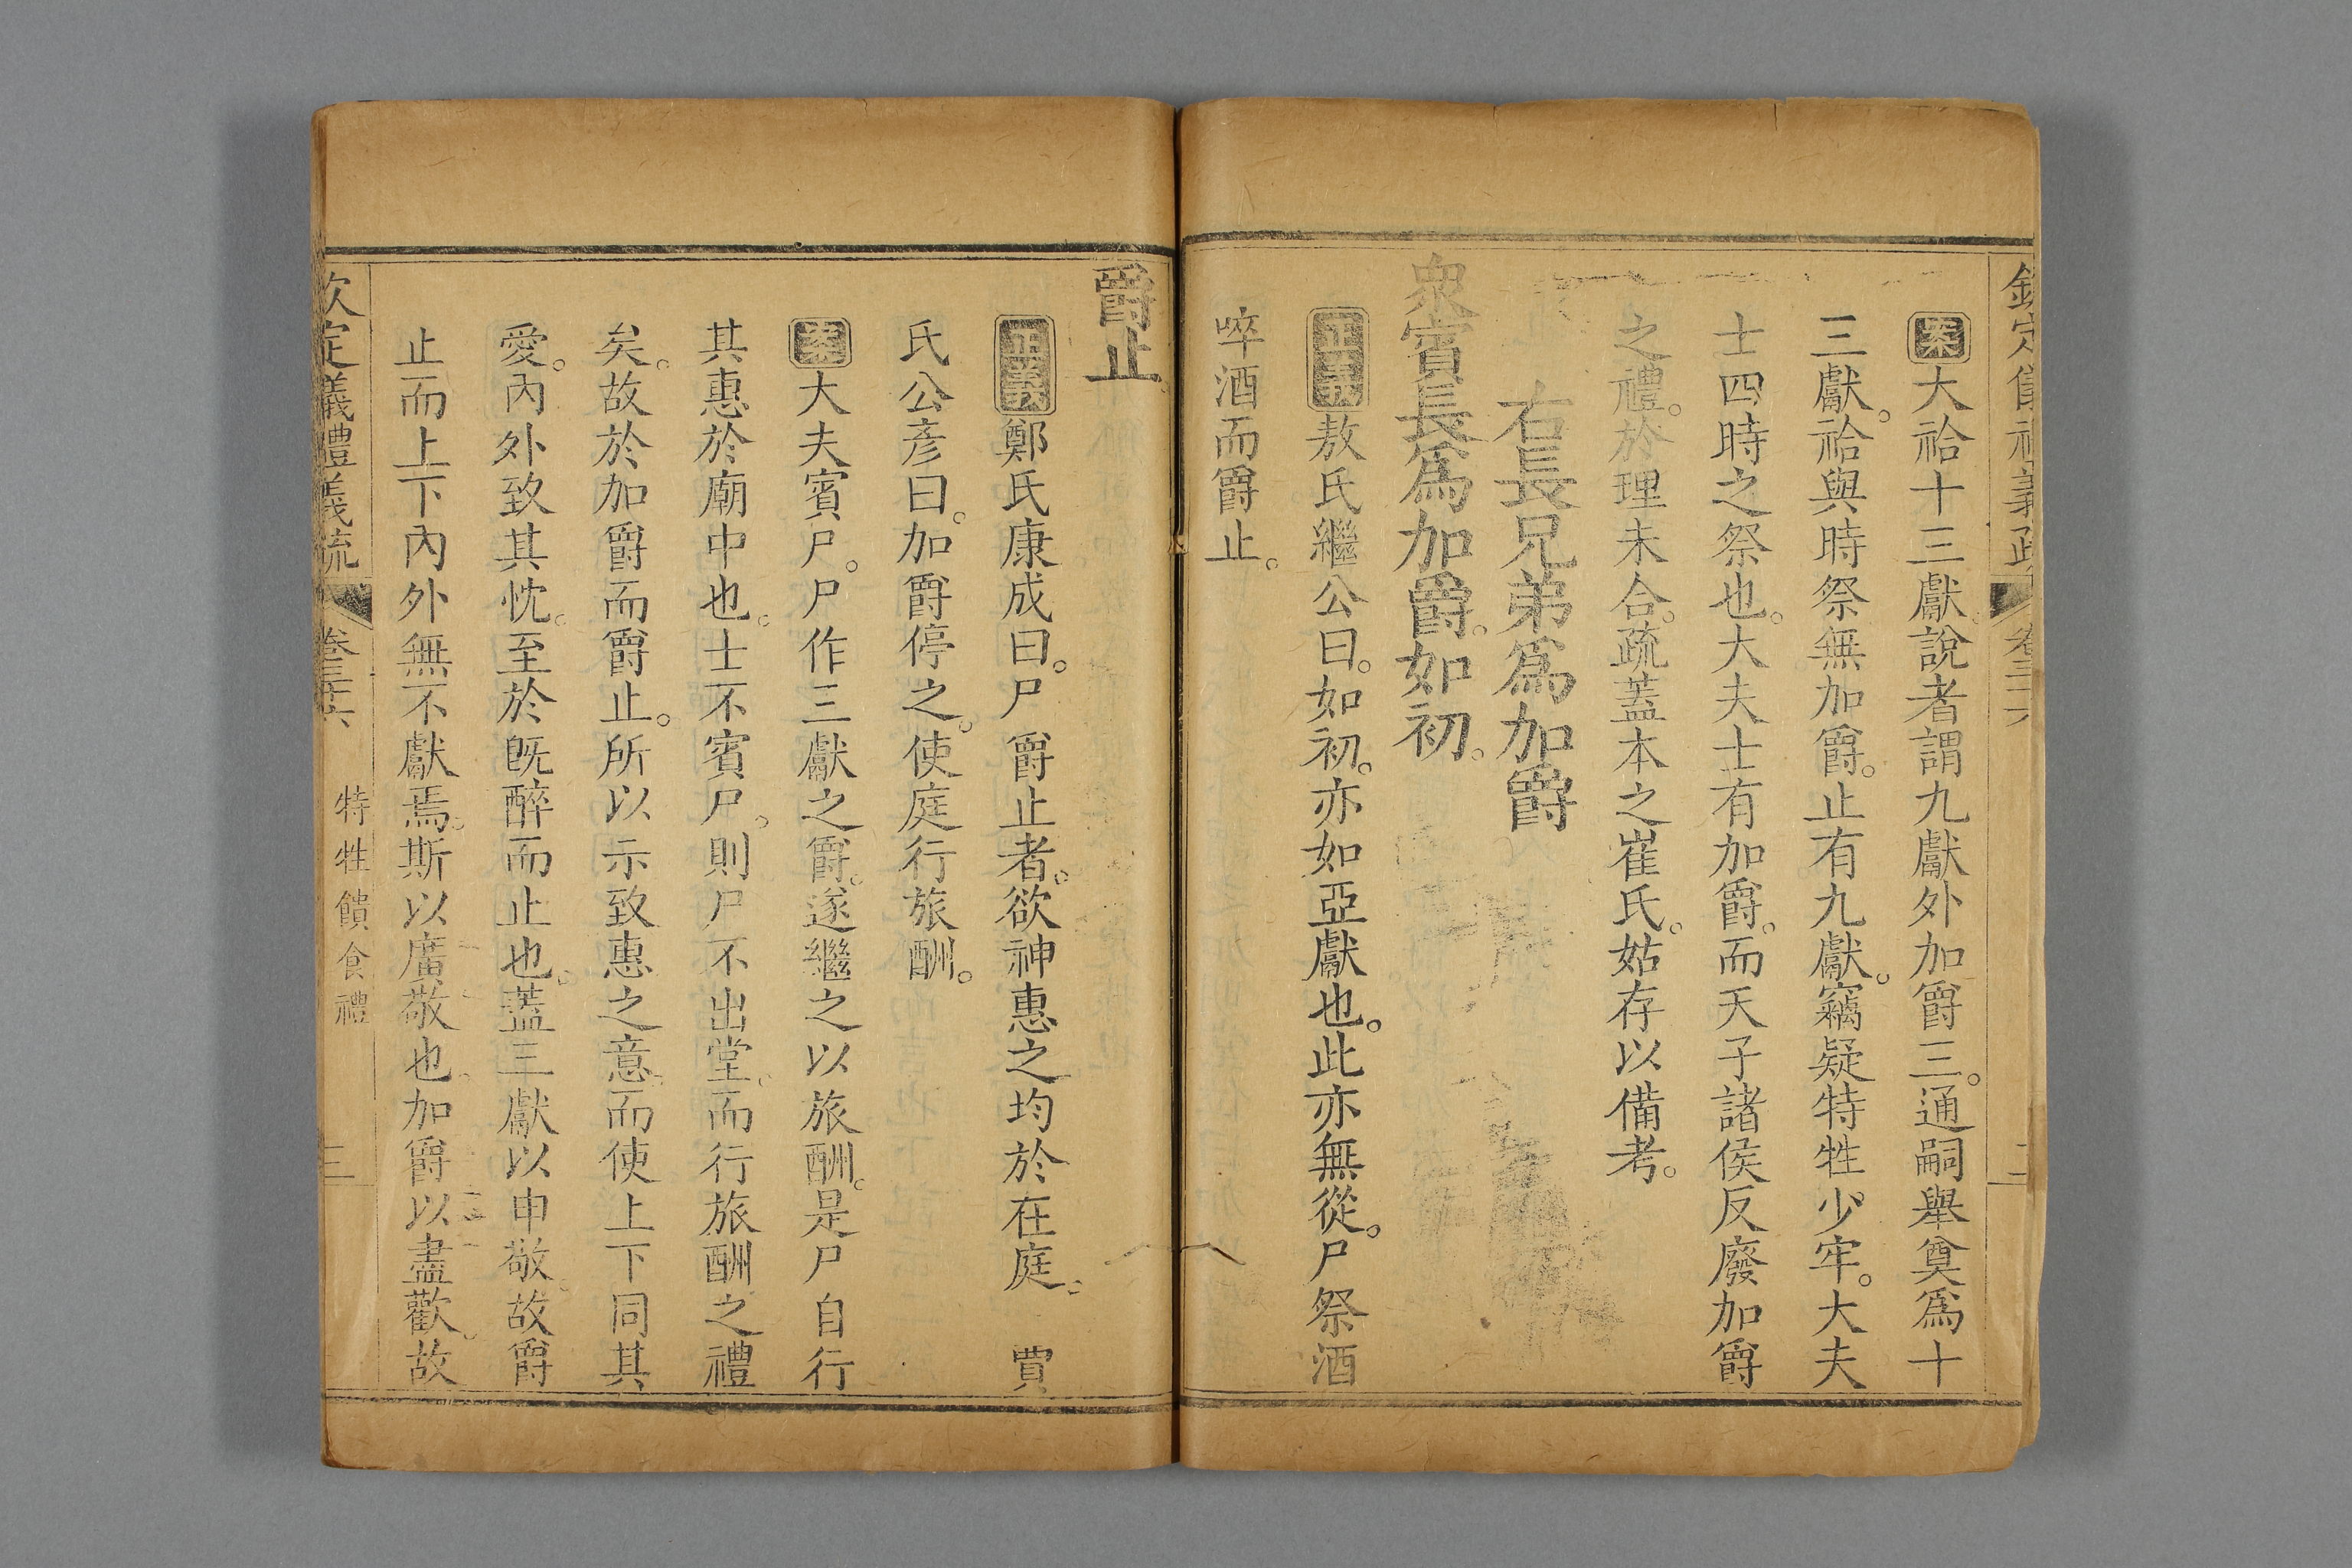 欽定儀禮義疏 卷三十六 二
案大祫十三獻。說者謂九獻外加爵三。通嗣舉奠爲十
三獻。祫與時祭無加爵。止有九獻。竊疑特牲少牢。大夫
士四時之祭也。大夫士有加爵。而天子諸侯反廢加爵
之禮。於理未合。疏蓋本之崔氏。姑存以備考。
右長兄弟爲加爵
衆賓長爲加爵。如初。
正義敖氏繼公曰。如初。亦如亞獻也。此亦無從。尸祭酒
啐酒而爵止。
爵止
正義鄭氏康成曰。尸爵止者。欲神惠之均於在庭。 賈
氏公彥曰。加爵停之。使庭行旅酬。
案大夫賓尸。尸作三獻之爵。遂繼之以旅酬。是尸自行
其惠於廟中也。士不賓尸。則尸不出堂。而行旅酬之禮
矣。故於加爵而爵止。所以示致惠之意。而使上下同其
愛。內外致其忱。至於旣醉而止也。蓋三獻以申敬。故爵
止而上下內外無不獻焉。斯以廣敬也。加爵以盡歡。故
欽定儀禮義疏 卷三十六 特牲饋食禮 三